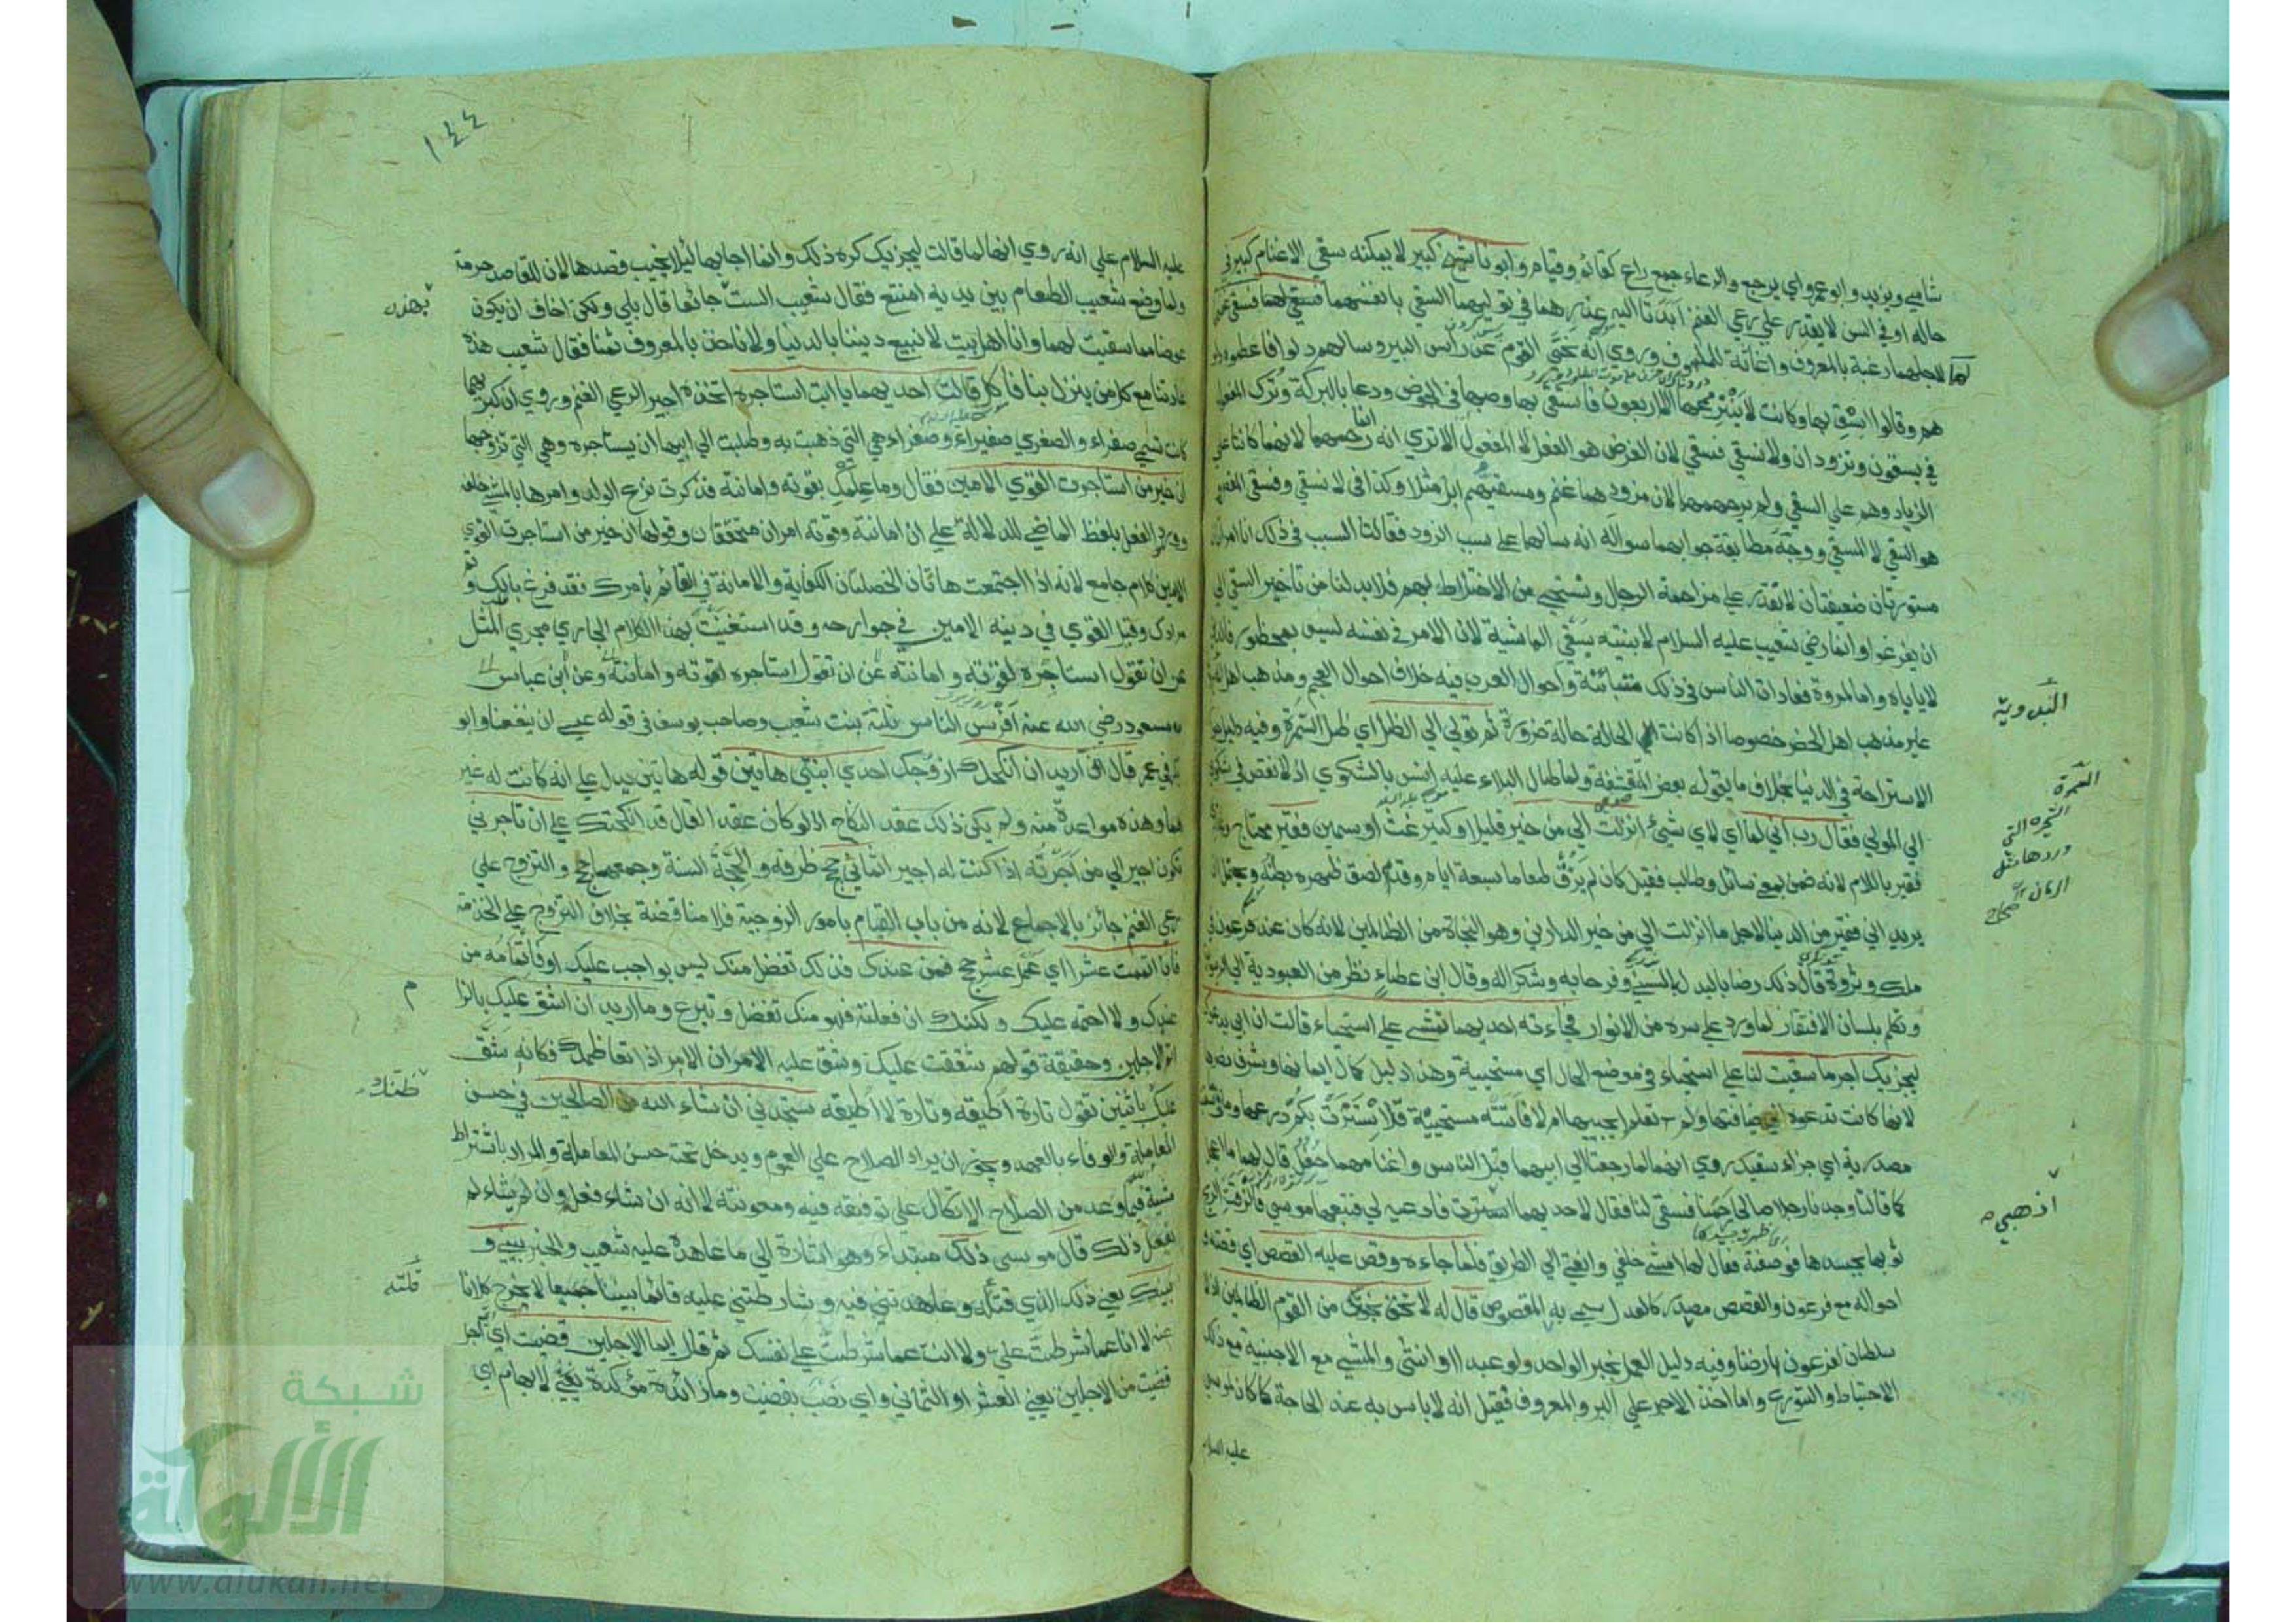 شامي ويزيد وابو عمرو اي يرجع والرعاء جمع راع كقائم وقيام وابونا شيخ كبير لا يمكنه سقي الاغنام كبير في
حاله او في السن لا يقدر علي رعي الغنم ابدتا اليه عذرهما في توليهما السقي بانفسهما فسقي لهما فسقي غنمهما
لاجلهما رغبة بالمعروف واغاثة للملهوف وروي انه نحي القوم عن راس البير وسالهم دلوا فاعطوه دلو
هم وقالوا استق بها وكانت لا ينزعها الا اربعون فاستقي بها وصبها في الحوض ودعا بالبركة وترك المفعول
في يسقون وتزودان ولا نسقي فسقي لان الغرض هو الفعل لا المفعول الا تري انه انما رحمهما لانهما كانتا علي
الزياد وهم علي السقي ولم يرحمهما لان مزودهما غنم ومسقيهم ابل مثلا وكذا في لا نسقي وفسقي المقصود
هو السقي لا المسقي ووجه مطابقة جوابهما سواله انه سالهما علي سبب الزود فقالتا السبب في ذلك انا امراتان
مستورتان ضعيفتان لا نقدر علي مزاحمة الرجال ونستحيي من الاختلاط بهم فلا بد لنا من تاخير السقي الي
ان يفرغوا وانما رضي شعيب عليه السلام لابنتيه بسقي الماشية لان الامر في نفسه ليس بمحظور فالدين
لا ياباه واما المروة فعادات الناس في ذلك متباينة واحوال العرب فيه خلاف احوال العجم ومذهب اهل البدو
غير مذهب اهل الحضر خصوصا اذا كانت الحالة حالة ضرورة ثم تولي الي الظل اي ظل السمرة وفيه دليل جواز
الاستراحة في الدنيا بخلاف ما يقوله بعض المتقشفة ولما طال البلاء عليه انس بالشكوي اذ لا نقص في شكوي
الي المولي فقال رب اني لما اي لاي شيئ انزلت الي من خير قليل او كثير غث او سمين فقير محتاج وعدي
فقير باللام لانه ضمن معني سائل وطالب فقيل كان لم يزق طعاما سبعة ايام وقد لصق ظهره ببطنه ويحتمل ان
يريد اني فقير من الدنيا لاجل ما انزلت الي من خير الدارين وهو النجاة من الظالمين لانه كان عند فرعون في
ملك وثروة قال ذلك رضا بالبدل السني وفرحا به وشكرا له وقال ابن عطاء نظر من العبودية الي الربوبية
وتكلم بلسان الافتقار لما ورد علي سره من الانوار فجاءته احديهما تمشي علي استحياء قالت ان ابي يدعوك
ليجزيك اجر ما سقيت لنا علي استحياء في موضع الحال اي مستحيية وهذا دليل كمال ايمانها وشرف عنصرها
لانها كانت تدعوه الي ضيافتها ولم تعلم ايجيبها ام لا فاتته مستحيية قد استترت بكم درعها وما في ما سقيت
مصدرية اي جزاء سقيك روي انهما لما رجعتا الي ابيهما قبل الناس واغنامهما حفل قال لهما ما اعجل
كما قالتا وجدنا رجلا صالحا رحمنا فسقي لنا فقال لاحديهما اذهبي فادعيه لي فتبعها موسي فالزقت الريح
ثوبها بجسدها فوصفته فقال لها امشي خلفي وانعتي الي الطريق فلما جاءه وقص عليه القصص اي قصته و
احواله مع فرعون والقصص مصدر كالعدل سمي به المقصوص قال له لا تخف نجوت من القوم الظالمين اذ لا
سلطان لفرعون بارضنا وفيه دليل العمل بخبر الواحد ولو عبدا او انثي والمشي مع الاجنبية مع ذلك
الاحتياط والتورع واما اخذ الاجر علي البر والمعروف فقيل انه لا باس به عند الحاجة كما كان لموسي
عليه السلام
البدو
السمرة
الشجرة التي
وردها مثل
الرمان
صحاح
اذهبي
١٤٤
عليه السلام علي انه روي انها لما قالت ليجزيك كره ذلك وانما اجابها لئلا يخيب قصدها لان للقاصد حرمة
ولما وضع شعيب الطعام بين يديه امتنع فقال شعيب الست جائعا قال بلي ولكن اخاف ان يكون
عوضا مما سقيت لهما وانا اهل بيت لا نبيع ديننا بالدنيا ولا ناخذ بالمعروف ثمنا فقال شعيب هذه
عادتنا مع كل من ينزل بنا فاكل قالت احديهما يا ابت استاجره اتخذه اجيرا لرعي الغنم وروي ان كبريهما
كانت تسمي صفراء والصغري صفيراء وصفراء هي التي ذهبت به وطلبت الي ابيها ان يستاجره وهي التي تزوجها
ان خير من استاجرت القوي الامين فقال وما علمك بقوته وامانته فذكرت نزع الدلو وامرها بالمشي خلفه
وورد الفعل بلفظ الماضي للدلالة علي ان امانته وقوته امران متحققان وقولها ان خير من استاجرت القوي
الامين كلام جامع لانه اذا اجتمعت هاتان الخصلتان الكفاية والامانة في القائم بامرك فقد فرغ بالك وتم
مرادك وقيل القوي في دينه الامين في جوارحه وقد استغنيت بهذا الكلام الجاري مجري المثل
عن ان تقول استاجره لقوته وامانته وعن ابن عباس
مسعود رضي الله عنه افرس الناس ثلثة بنت شعيب وصاحب يوسف في قوله عسي ان ينفعنا وابو
بكر في عمر قال اني اريد ان انكحك ازوجك احدي ابنتي هاتين قوله هاتين يدل علي انه كانت له غير
هما وهذه مواعدة منه ولم يكن ذلك عقد النكاح اذ لو كان عقدا لقال قد انكحتك علي ان تاجرني
تكون اجيرا لي من اجرته اذا كنت له اجيرا ثماني حجج ظرفه والحجة السنة وجمعها حجج والتزوج علي
رعي الغنم جائز بالاجماع لانه من باب القيام بامور الزوجية فلا مناقضة بخلاف التزوج علي الخدمة
فان اتممت عشرا اي عمل عشر حجج فمن عندك فذلك تفضل منك ليس بواجب عليك او فاتمامه من
عندك ولا احتمه عليك ولكنك ان فعلته فهو منك تفضل وتبرع وما اريد ان اشق عليك بالزام
اتم الاجلين وحقيقة قولهم شققت عليك وشق عليه الامر ان الامر اذا تعاظمك فكانه شق
عليك باثنين تقول تارة اطيقه وتارة لا اطيقه ستجدني ان شاء الله من الصالحين في حسن
المعاملة والوفاء بالعهد ويجوز ان يراد الصلاح علي العموم ويدخل تحته حسن المعاملة والمراد باشتراط
مشية فيما وعد من الصلاح الاتكال علي توفيقه فيه ومعونته لا انه ان شاء فعل وان لم يشاء لم
يفعل ذلك قال موسي ذلك مبتداء وهو اشارة الي ما عاهده عليه شعيب والخبر بيني و
بينك يعني ذلك الذي قلته وعاهدتني فيه وشارطتني عليه قائما بيننا جميعا لا يخرج كلانا
عنه لا انا عما شرطت علي ولا انت عما شرطت علي نفسك ثم قال ايما الاجلين قضيت اي اي اجل
قضيت من الاجلين يعني العشر او الثماني واي نصب بقضيت وما زائدة مؤكدة يعني لابهام اي
بهذا
م
قلته
شبكة
الألوكة
www.alukah.net